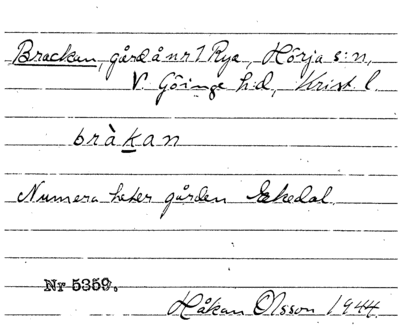 Brackan, gård å nr 1 Rya, Hörja s:n,
V. Göinge h:d, Krist. l.
bràkan
Numera heter gården Ekedal.
Nr 5359.
Håkan Olsson 1944.